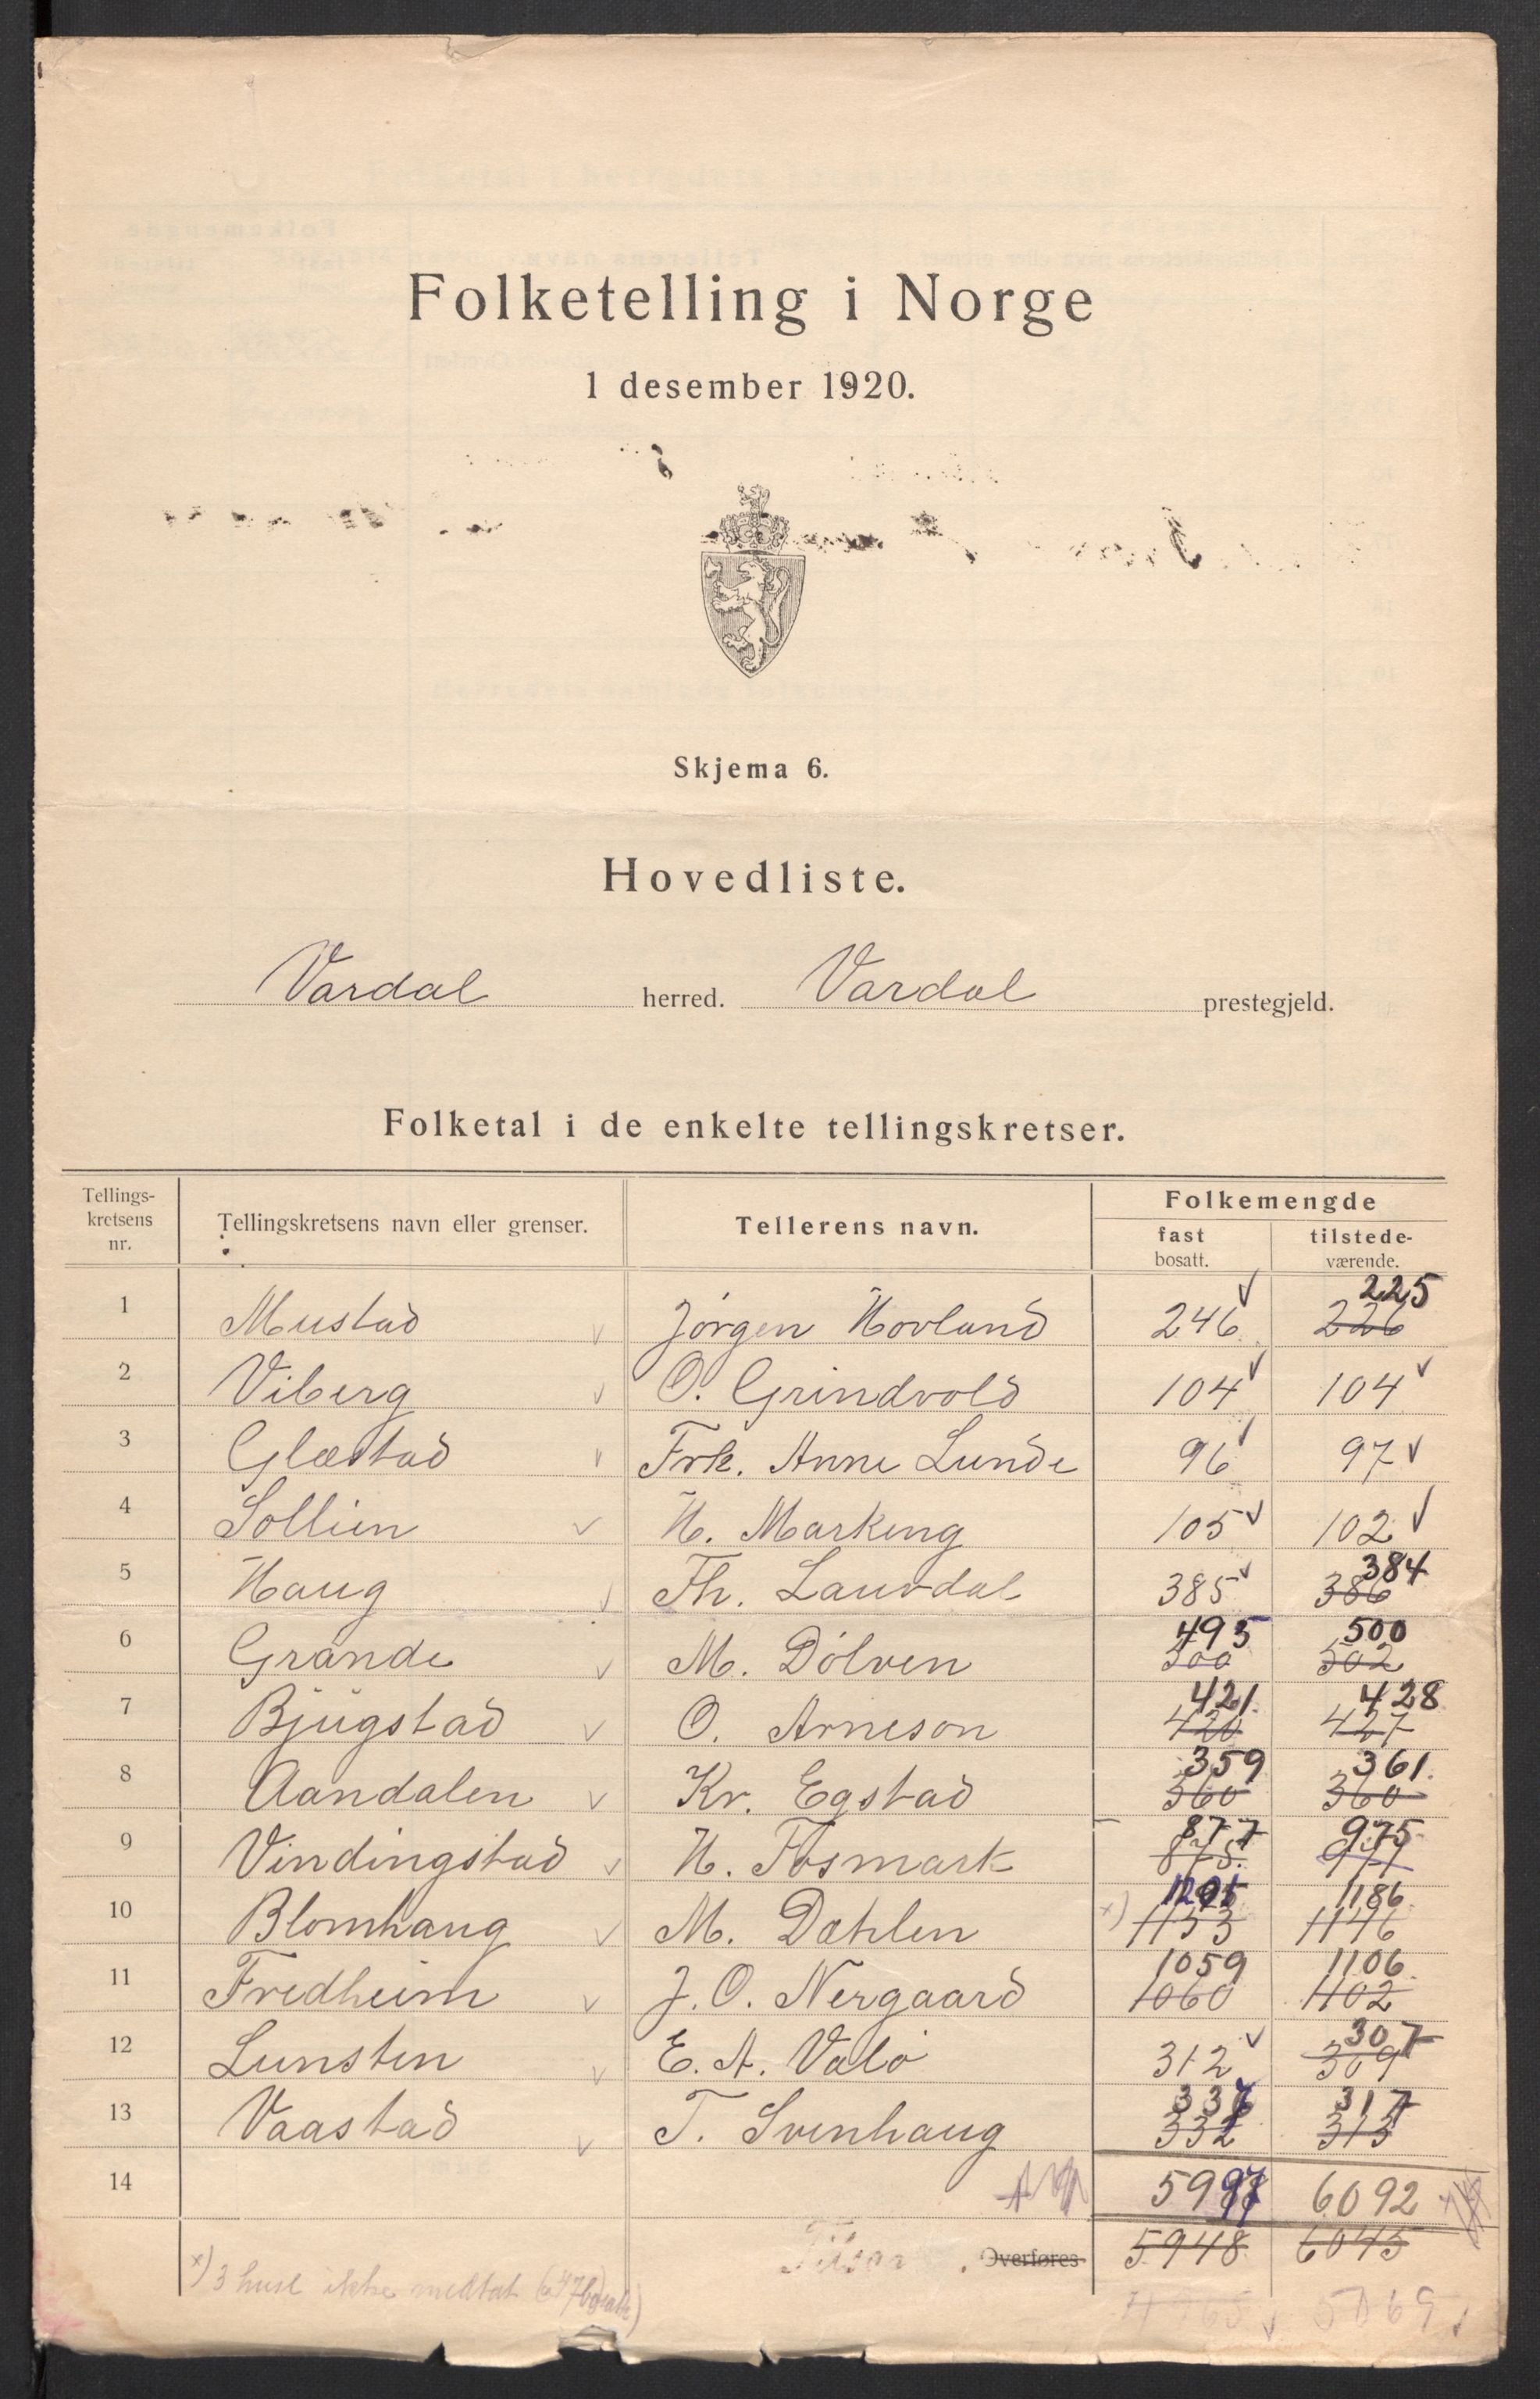 Folketelling i Norge
1 desember 1920.
Skjema 6.
Hovedliste.
Vardal herred. Vardal prestegjeld.
Folketal i de enkelte tellingskretser.
Tellings-kretsens nr. Tellingskretsens navn eller grenser. Tellerens navn. Folkemengde
fast bosatt. tilstede-værende.
225
1 Mustad Jørgen Hovland 246 226
2 Viberg O. Grindvold 104 104
3 Glæstad Frk. Anne Lunde 96 97
4 Sollien H. Markeng 105 102
384
5 Haug Th. Lauvdal 385 386
495 500
6 Grande M. Dølven 500 502
421 428
7 Bjugstad O. Arneson 420 427
359 361
8 Aandalen Kr. Egstad 360 360
877 975
9 Vindingstad H. Fosmark 875 977
1186
10 Blomhaug M. Dæhlen x) 1153 1146
1059 1106
11 Fredheim J. O. Nergaard 1060 1102
307
12 Lunsten E. A. Valø 312 309
317
13 Vaastad T. Svenhaug 332 313
14 6092
Overføres 5948 6045
x) 3 huse ikke medtat